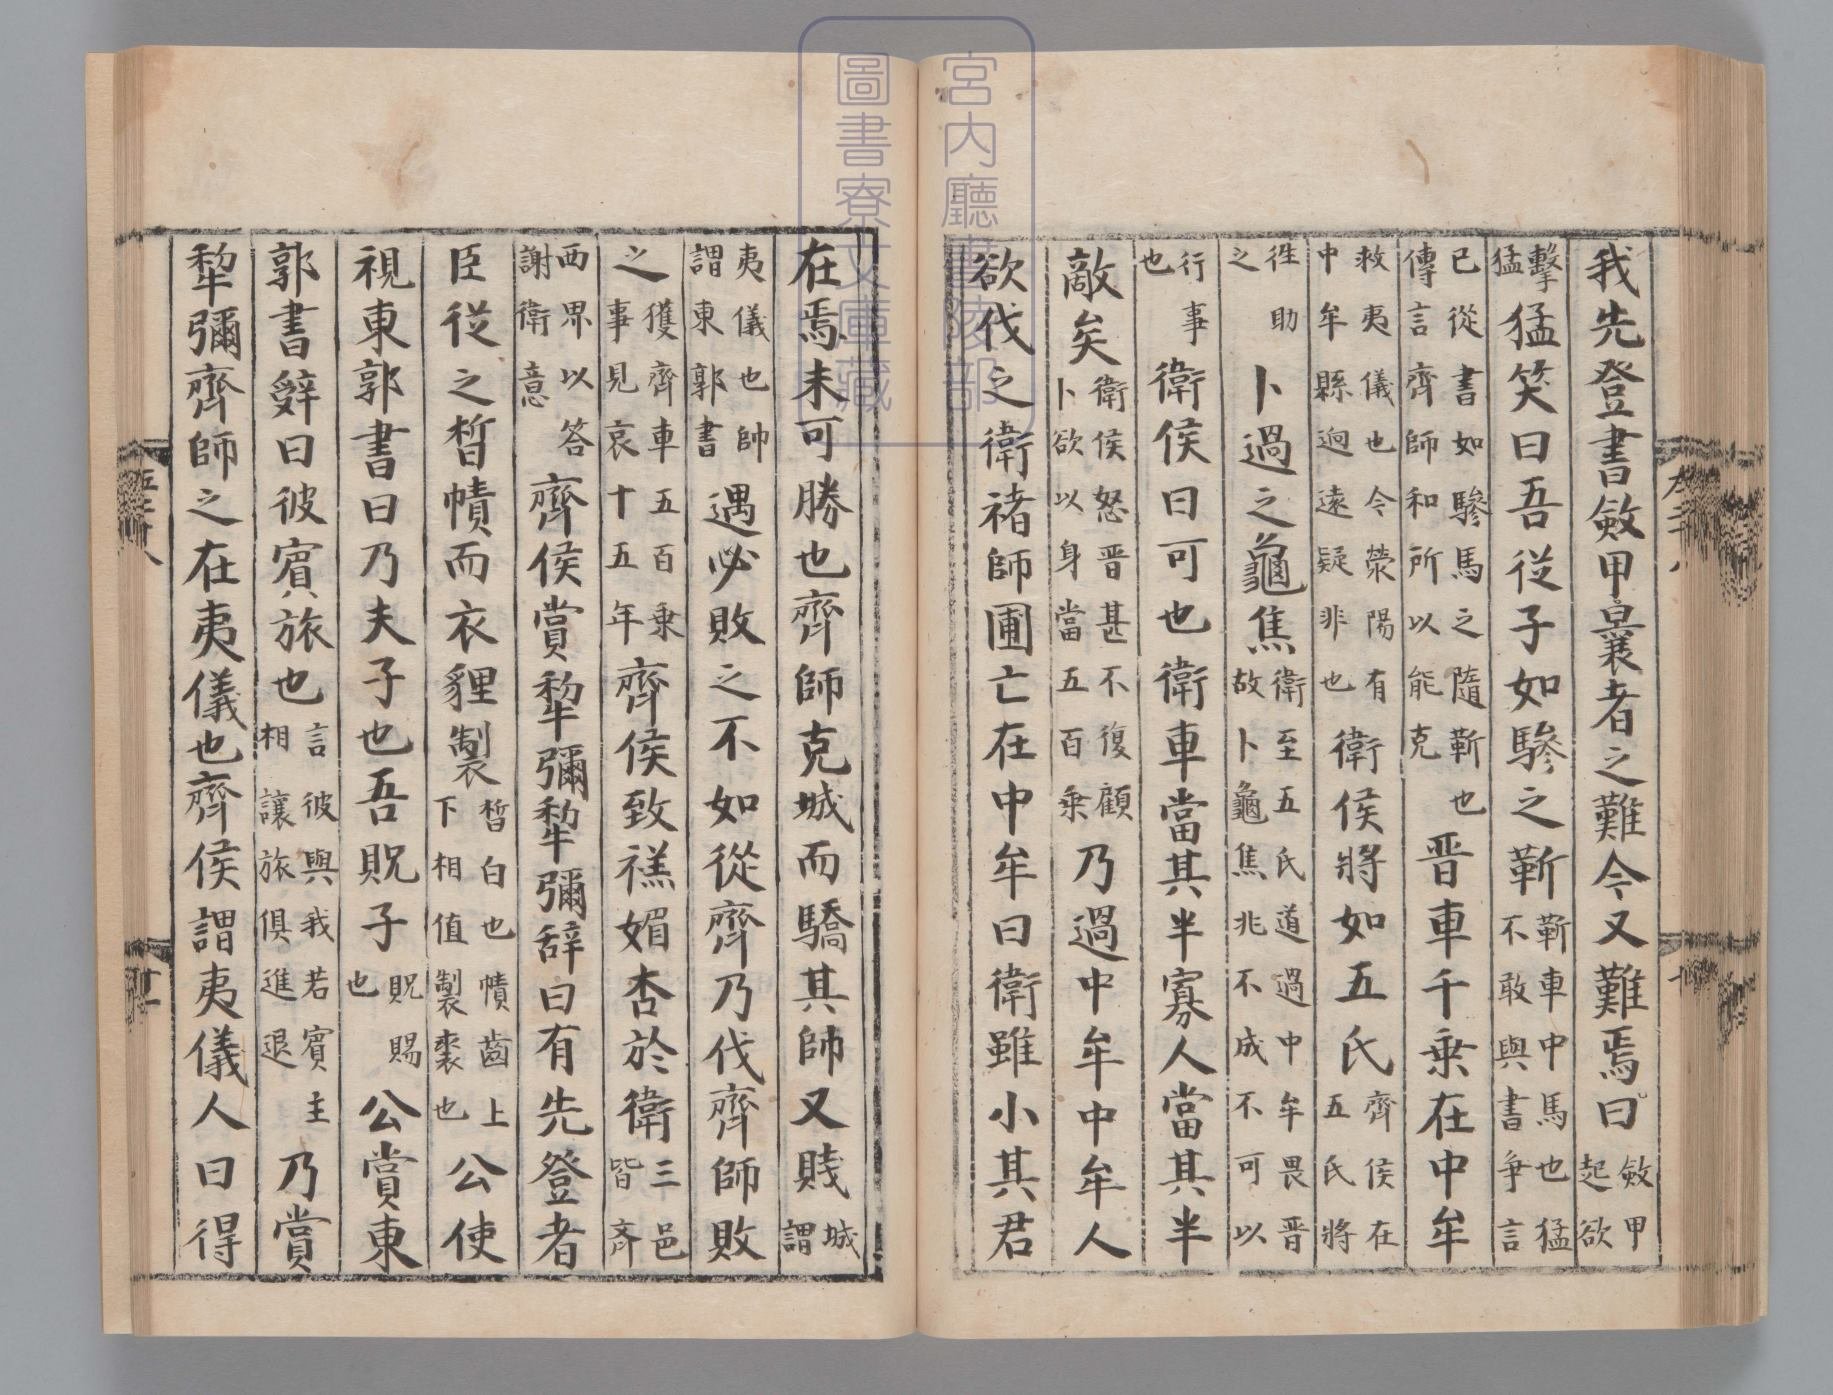 我先登書斂甲曩者之難今又難焉曰斂甲起欲
擊猛猛笑曰吾從子如驂之靳靳車中馬也猛不敢與書争言
已從書如驂馬之隨靳也傳言齊師和所以能克晋車千乗在中牟
救夷儀也今滎陽有中牟縣迥遠疑非也衛侯將如五氏齊侯在五氏將
徃助之卜過之龜焦衛至五氏道過中牟畏晋故卜龜焦兆不成不可以
行事也衛侯曰可也衛車當其半寡人當其半
敵矣衛侯怒晋甚不復顧卜欲以身當五百乗乃過中牟中牟人
欲伐之衛褚師圃亡在中牟曰衛雖小其君
在焉未可勝也齊師克城而驕其帥又賎城謂
夷儀也帥謂東郭書遇必敗之不如從齊乃伐齊師敗
之獲齊車五百乗事見哀十五年齊侯致禚媚杏於衛三邑皆齊
西界以答謝衛意齊侯賞犂彌犂彌辞曰有先登者
臣從之晳幘而衣貍製晳白也幘齒上下相值製裘也公使
視東郭書曰乃夫子也吾貺子貺賜也公賞東
郭書辤曰彼賔旅也言彼與我若賔主相讓旅俱進退乃賞
犂彌齊師之在夷儀也齊侯謂夷儀人曰得
宮内廳書陵部
圖書寮文庫藏